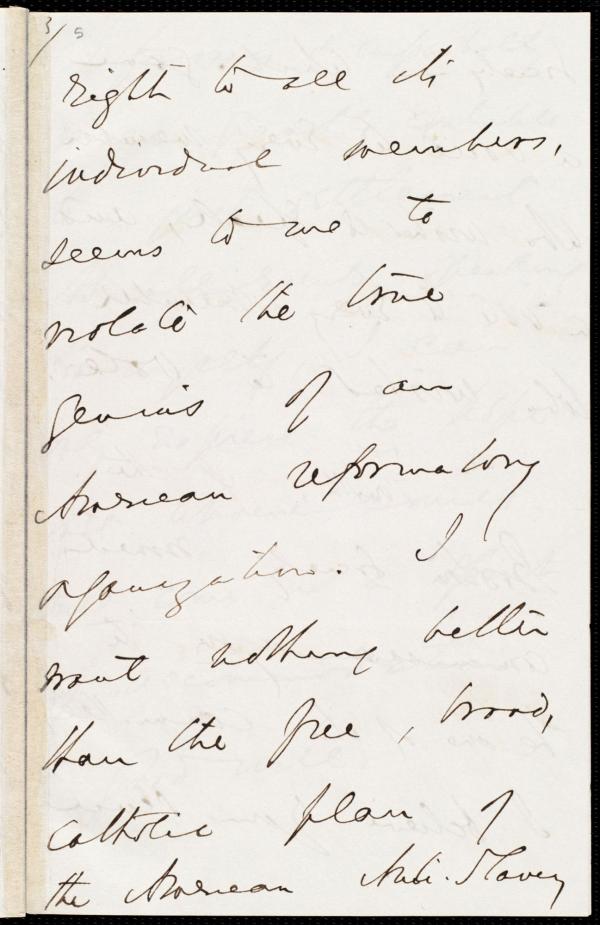 3/5
right to see its
individual members,
seems to me to
violate the true
genius of an
American reformatory
organization. I
want nothing better
than the free, broad,
catholic plan of
the American Anti-Slavery